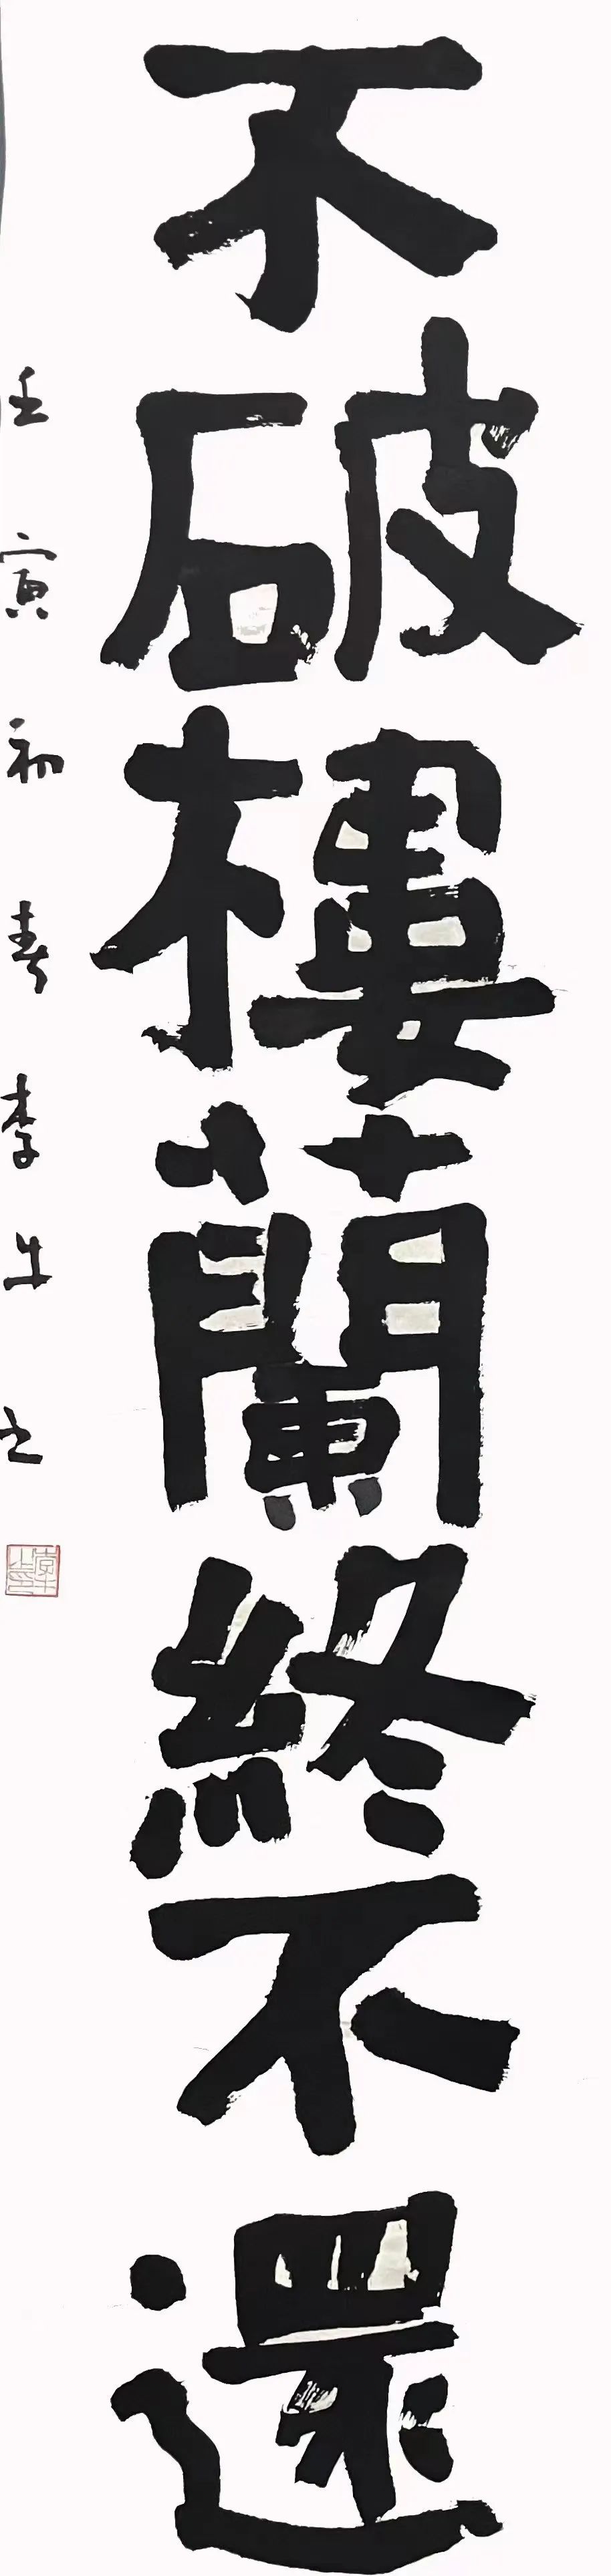 不破樓蘭終不還
壬寅初春李牛书